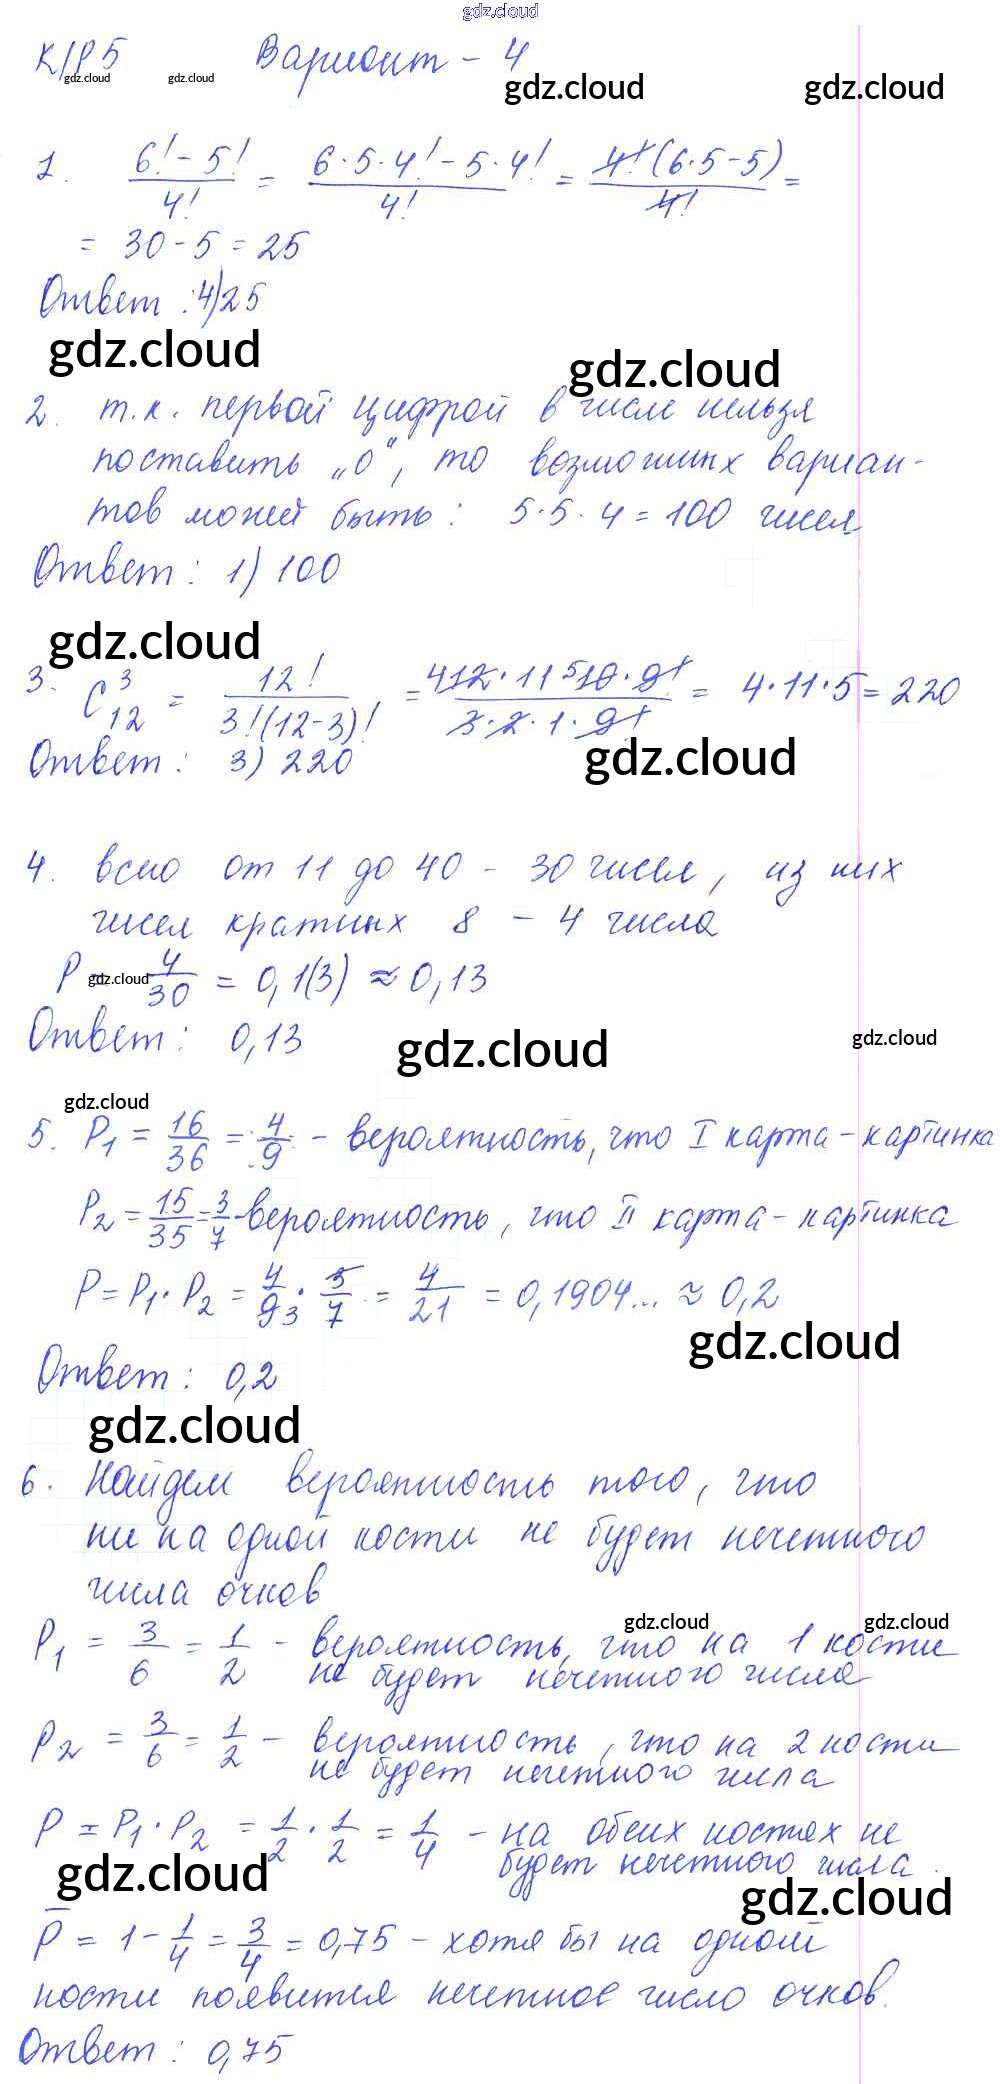 gdz.cloud
К/Р 5 Вариант - 4
gdz.cloud gdz.cloud gdz.cloud gdz.cloud
1. (6! - 5!)/4! = (6·5·4! - 5·4!)/4! = 4!(6·5-5)/4! =
= 30 - 5 = 25
Ответ : 4) 25
gdz.cloud gdz.cloud
2. т.к. первой цифрой в числе нельзя
поставить „0“, то возможных вариан-
тов может быть: 5·5·4 = 100 чисел
Ответ : 1) 100
gdz.cloud
3. C₁₂³ = 12!/(3!(12-3)!) = 4 12·11·5 10·9!/(3·2·1·9!) = 4·11·5 = 220
Ответ : 3) 220
gdz.cloud
4. всего от 11 до 40 - 30 чисел, из них
чисел кратных 8 - 4 числа
P = 4/30 = 0,1(3) ≈ 0,13
gdz.cloud
Ответ : 0,13
gdz.cloud gdz.cloud
gdz.cloud
5. P₁ = 16/36 = 4/9 - вероятность, что I карта - картинка
P₂ = 15/35 = 3/7 - вероятность, что II карта - картинка
P = P₁·P₂ = 4/9 3 · 3/7 = 4/21 = 0,1904... ≈ 0,2
gdz.cloud
Ответ : 0,2
gdz.cloud
6. Найдем вероятность того, что
ни на одной кости не будет нечетного
числа очков
gdz.cloud gdz.cloud
P₁ = 3/6 = 1/2 - вероятность, что на 1 кости
не будет нечетного числа
P₂ = 3/6 = 1/2 - вероятность, что на 2 кости
не будет нечетного числа
P = P₁·P₂ = 1/2 · 1/2 = 1/4 - на обеих костях не
будет нечетного числа.
gdz.cloud gdz.cloud
P̄ = 1 - 1/4 = 3/4 = 0,75 - хотя бы на одной
кости появится нечетное число очков.
Ответ : 0,75